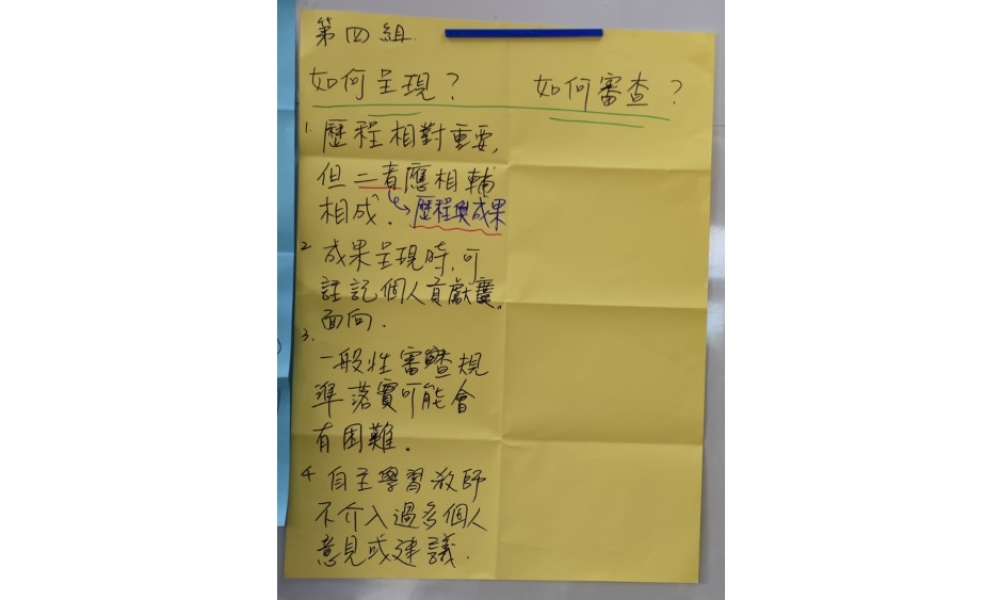 第四組.
如何呈現? 如何審查?
1. 歷程相對重要,
但二者應相輔
相成. 歷程與成果
2 成果呈現時,可
註記個人貢獻度。
面向.
3.
一般性審查規
準落實可能會
有困難.
4 自主學習教師
不介入過多個人
意見或建議.